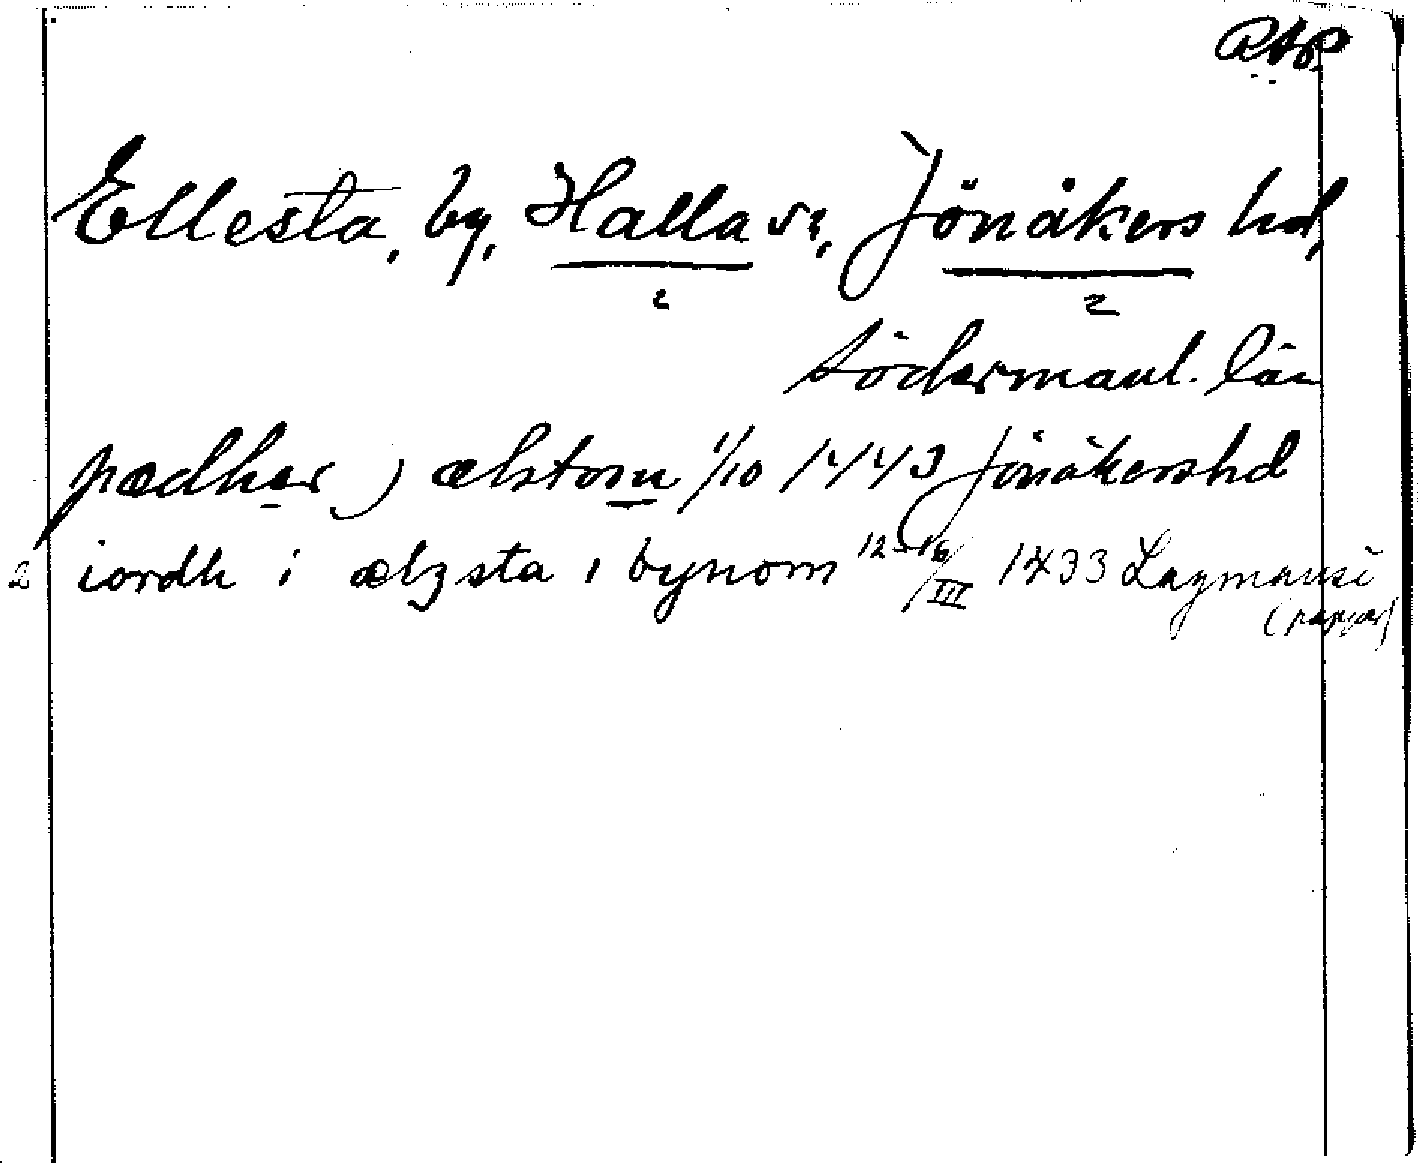 RAP
Ellesta, by, Halla sn, Jönåkers hd,
2 2
Södermanl. län
pædher j ælstom 1/10 1443 Jönåkers hd
2 iordh i ælzsta i bynom 12-16/III 1433 Lagmansi
(papper)